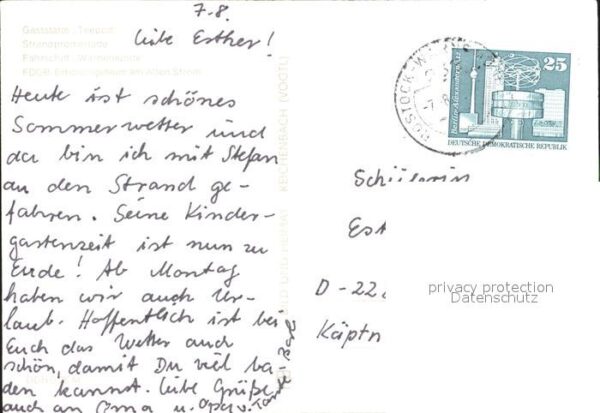 7.8.
Liebe Esther!
Heute ist schönes
Sommerwetter und
da bin ich mit Stefan
an den Strand ge-
fahren. Seine Kinder-
gartenzeit ist nun zu
Ende! Ab Montag
haben wir auch Ur-
laub. Hoffentlich ist bei
Euch das Wetter auch
schön, damit Du viel ba-
den kannst. Liebe Grüße
auch an Oma u. Opa v. Tante
Gaststätte "Teepott"
Strandpromenade
Fahrschiff "Warnemünde"
FDGB-Erholungsheim am Alten Strom
REICHENBACH (VOGTL)
BILD UND HEIMAT
ROSTOCK-WARN
25
Berlin-Alexanderplatz
DEUTSCHE DEMOKRATISCHE REPUBLIK
Schülerin
Est
D-22
Käptn
privacy protection
Datenschutz